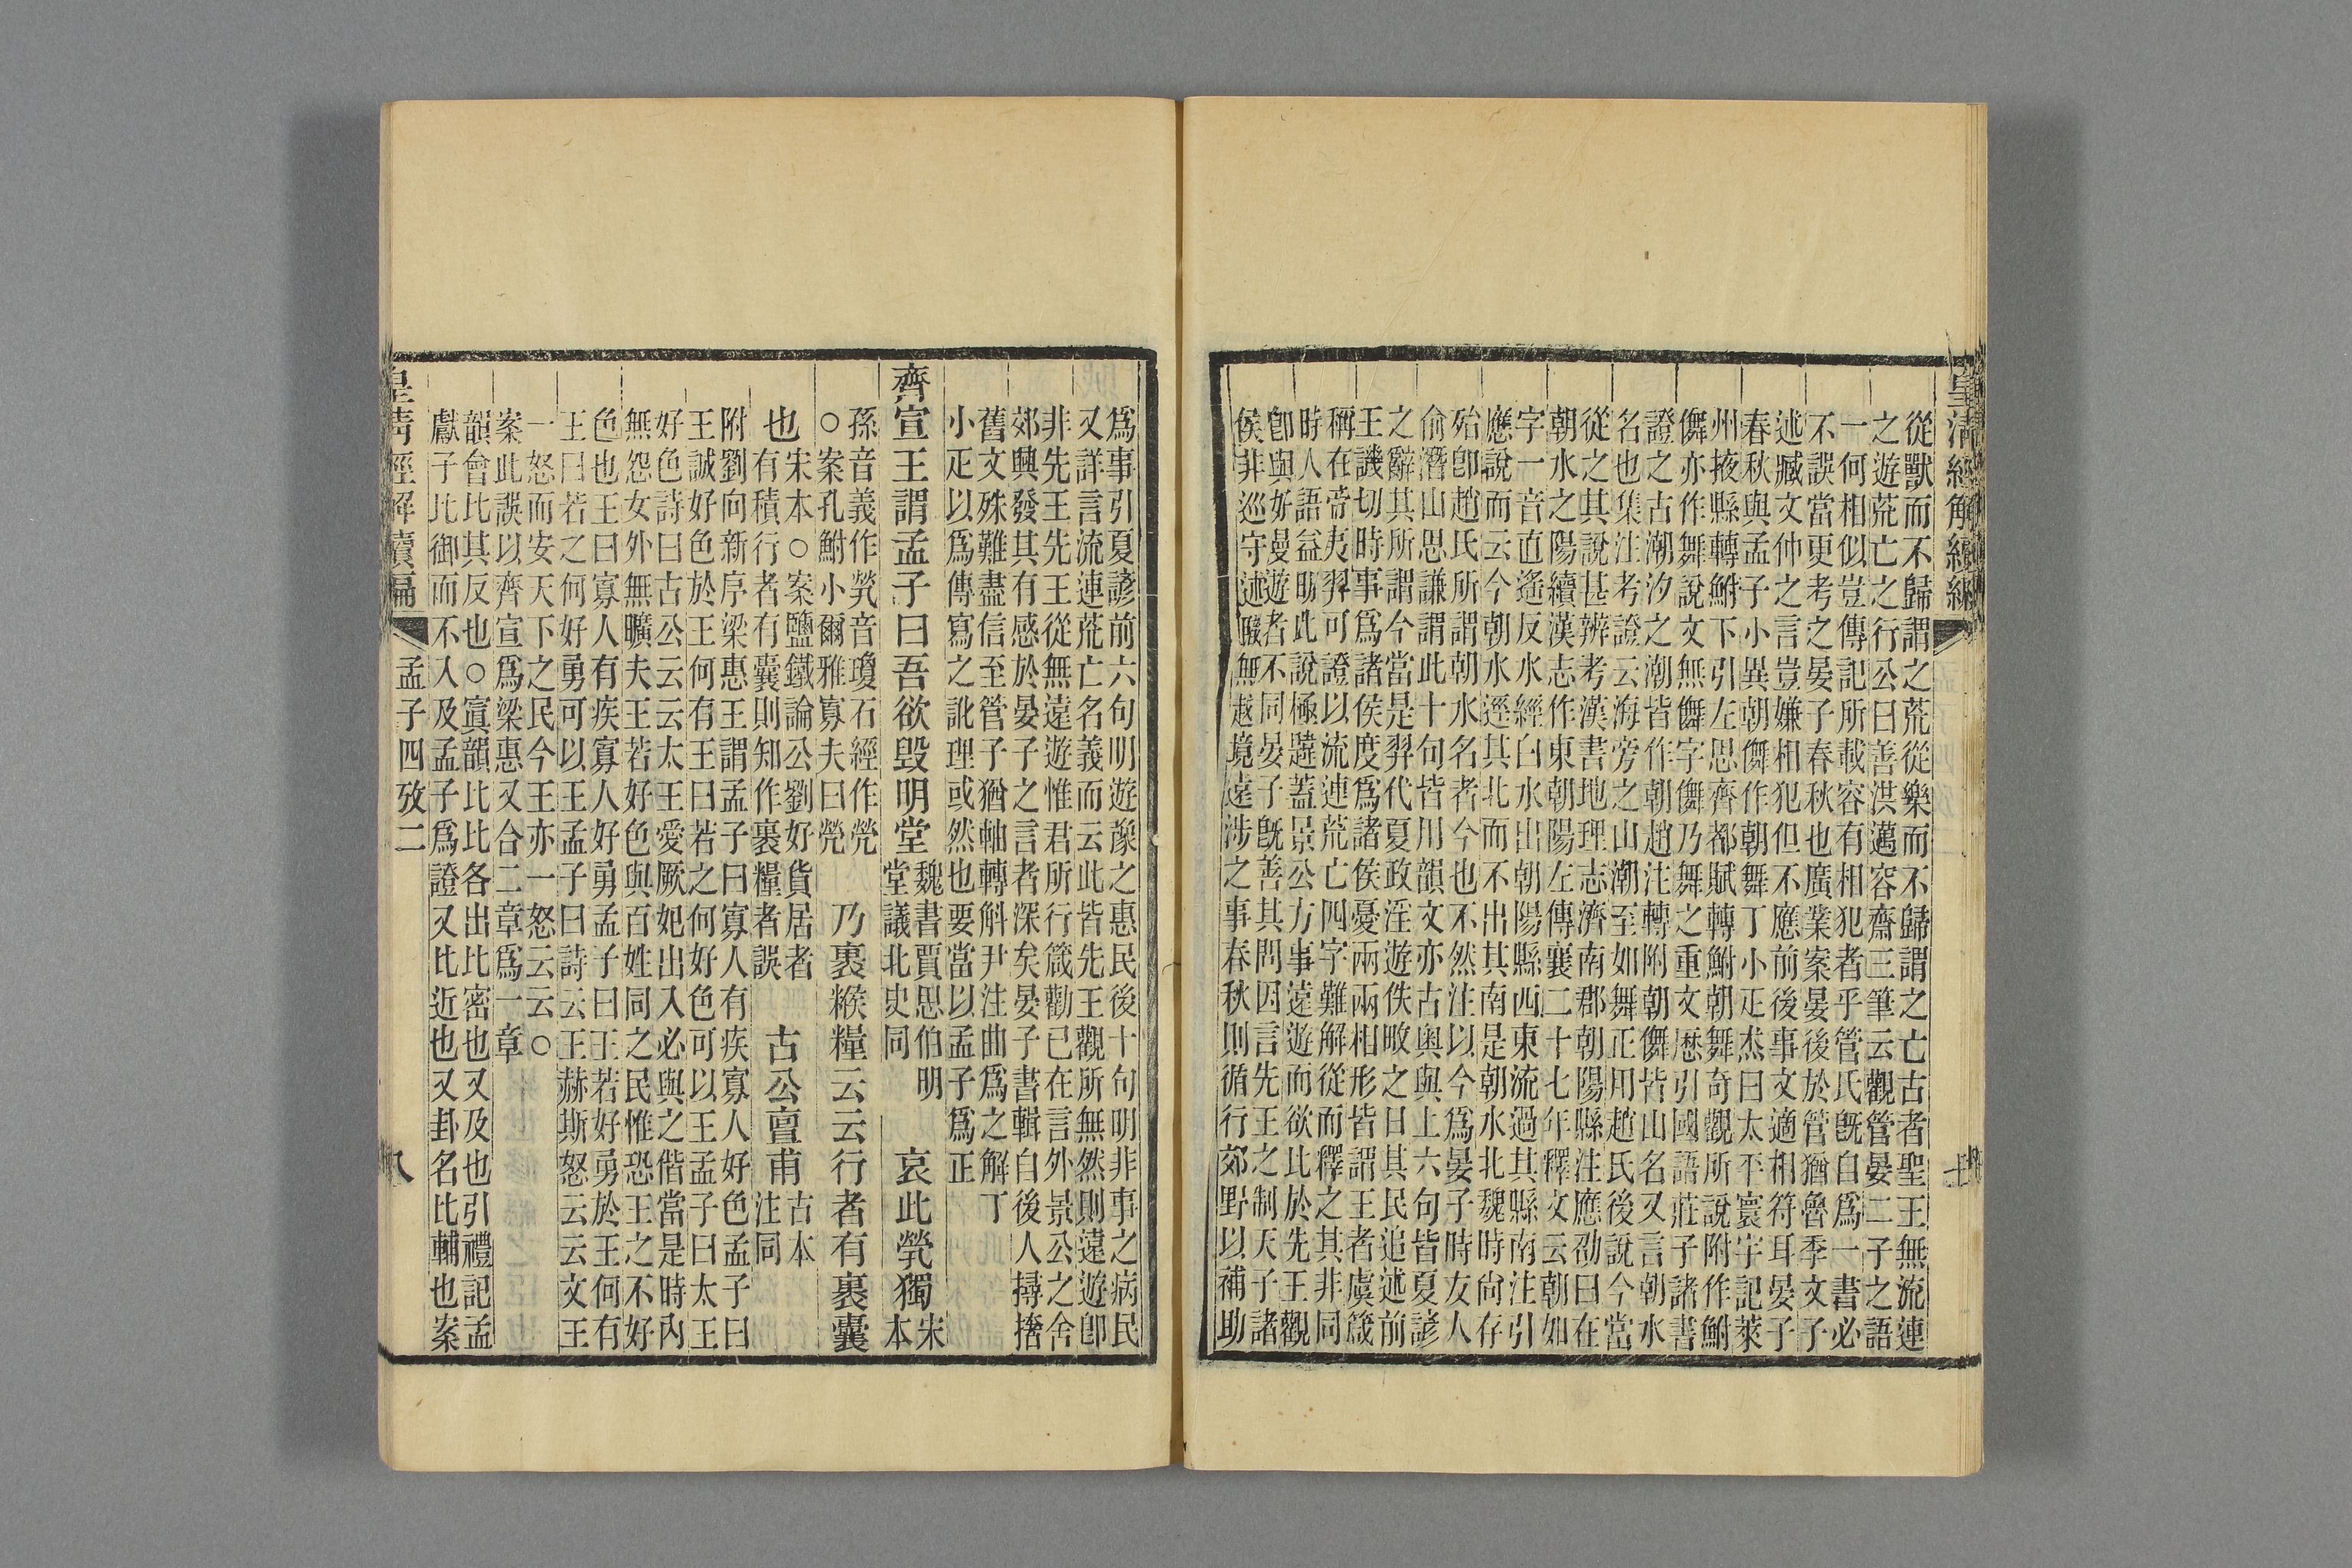 從獸而不歸謂之荒從樂而不歸謂之亡古者聖王無流連
之遊荒亡之行公曰善洪邁容齋三筆云觀管晏二子之語
一何相似豈傳記所載容有相犯者乎管氏旣自爲一書必
不誤當更考之晏子春秋也廣業案晏後於管猶魯季文子
述臧文仲之言豈嫌相犯但不應前後事文適相符耳晏子
春秋與孟子小異朝儛作朝舞丁小疋杰曰太平寰宇記萊
州掖縣轉鮒下引左思齊都賦轉鮒朝舞奇觀所說附作鮒
儛亦作舞說文無儛字儛乃舞之重文歷引國語莊子諸書
證之古潮汐之潮皆作朝趙注轉附朝儛皆山名又言朝水
名也集注考證云海旁之山潮至如舞正用趙氏後說今當
從之其說甚辨考漢書地理志濟南郡朝陽縣注應劭曰在
朝水之陽續漢志作東朝陽左傳襄二十七年釋文云朝如
字一音直遙反水經白水出朝陽縣西東流過其縣南注引
應說而云今朝水逕其北而不出其南是朝水北魏時尙存
殆卽趙氏所謂朝水名者今也不然注以今爲晏子時友人
俞潛山思謙謂此十句皆用韻文亦古奧與上六句皆夏諺
之辭其所謂今當是羿代夏政淫遊佚畋之日其民追述前
王譏切時事爲諸侯度爲諸侯憂兩兩相形皆謂王者虞箴
稱在帝夷羿可證以流連荒亡四字難解從而釋之其非同
時人語益明此說極韙蓋景公方事遠遊而欲比於先王觀
卽與好漫遊者不同晏子旣善其問因言先王之制天子諸
侯非巡守述職無越境遠涉之事春秋則循行郊野以補助
爲事引夏諺前六句明遊豫之惠民後十句明非事之病民
又詳言流連荒亡名義而云此皆先王觀所無然則遠遊卽
非先王先王從無遠遊惟君所行箴勸已在言外景公之舍
郊興發其有感於晏子之言者深矣晏子書輯自後人撏撦
舊文殊難盡信至管子猶軸轉斛尹注曲爲之解丁
小疋以爲傳寫之訛理或然也要當以孟子爲正
齊宣王謂孟子曰吾欲毀明堂魏書賈思伯明堂議北史同 哀此煢獨宋本
孫音義作煢音瓊石經作㷀
○案孔鮒小爾雅寡夫曰㷀 乃裹餱糧云云行者有裹囊
也宋本○案鹽鐵論公劉好貨居者有積行者有囊則知作裹糧者誤 古公亶甫古本注同
附劉向新序梁惠王謂孟子曰寡人有疾寡人好色孟子曰
王誠好色於王何有王曰若之何好色可以王孟子曰太王
好色詩曰古公云云太王愛厥妃出入必與之偕當是時內
無怨女外無曠夫王若好色與百姓同之民惟恐王之不好
色也王曰寡人有疾寡人好勇孟子曰王若好勇於王何有
王曰若之何好勇可以王孟子曰詩云王赫斯怒云云文王
一怒而安天下之民今王亦一怒云云○
案此誤以齊宣爲梁惠又合二章爲一章
韻會比其反也○寘韻比比各出比密也又及也引禮記孟
獻子比御而不入及孟子爲證又比近也又卦名比輔也案
皇清經解續編 孟子四攷二 八